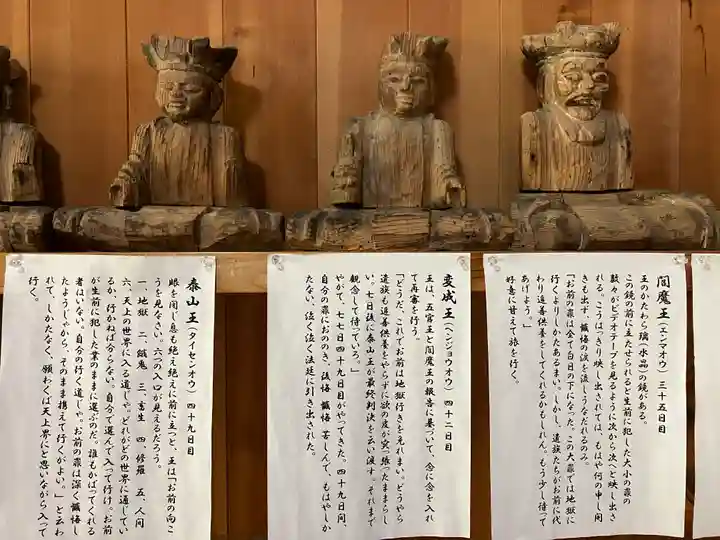 閻魔王(エンマオウ) 三十五日目
王のかたわら璃(水晶)の鏡がある。
この鏡の前に立たせられると生前に犯した大小の罪の
数々がビデオテープを見るように次から次へと映し出さ
れる。こうはっきり映し出されては、もはや何の申し開
きも出ず、懺悔の涙を流しうなだれるのみ。
「お前の罪は全て白日の下になった。この大罪では地獄に
行くよりしかたあるまい。しかし、遺族たちがお前に代
わり追善供養をしてくれるかもしれん。もう少し待って
あげよう。」
好意に甘えて旅を行く。
変成王(ヘンジョウオウ) 四十二日目
王は、五官王と閻魔王の報告に基づいて、念に念を入れ
て再審を行う。
「どうだ、これでお前は地獄行きを免れまい。どうやら
遺族も追善供養をやらずに欲の皮が突っ張ったままらし
い。七日後に泰山王が最終判決を云い渡す。それまで
観念して待っていろ。」
やがて、七七日四十九日目がやってきた。四十九日間、
自分の罪におののき、後悔 懺悔 苦しんで、もはやしか
たない、泣く泣く法廷に引き出された。
泰山王(タイセンオウ) 四十九日目
眼を閉じ息も絶え絶えに前に立つと、王は「お前の向こ
うを見なさい。六つの入口が見えるだろう。
一、地獄 二、餓鬼 三、畜生 四、修羅 五、人間
六、天上の世界に入る道じゃ。どれがどの世界に通じてい
るか、行かねば分らない。自分で選んで入って行け。お前
が生前に犯した業のままに選ぶのだ。誰もかばってくれる
者はいない。自分の行く道じゃ。お前の罪は深く懺悔し
たようじゃから、そのまま携えて行くがよい。」と云わ
れて、しかたなく、願わくば天上界にと思いながら入って
行く。